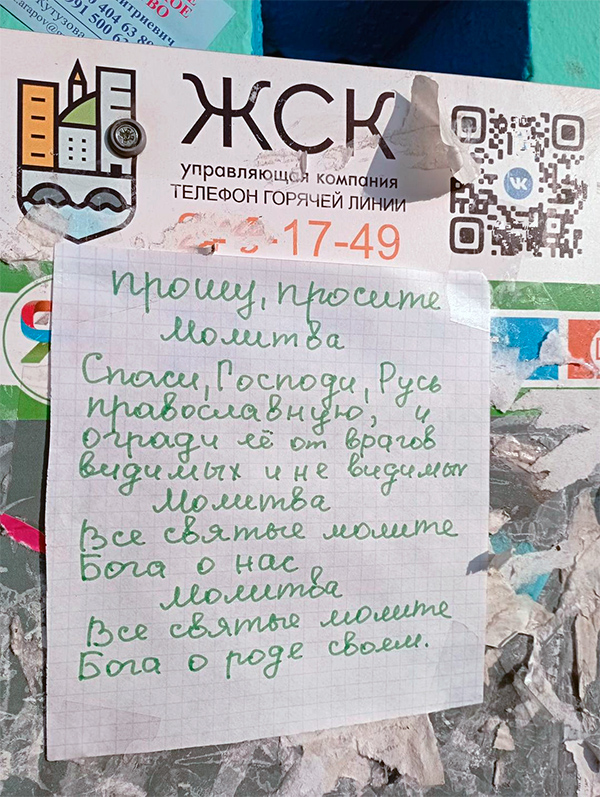 итриевич
Кутузова
404 63 8
500 6
ЖСК
управляющая компания
ТЕЛЕФОН ГОРЯЧЕЙ ЛИНИИ
-17-49
прошу, просите
Молитва
Спаси, Господи, Русь
православную, и
огради её от врагов
видимых и не видимых
Молитва
Все святые молите
Бога о нас
Молитва
Все святые молите
Бога о роде своем.